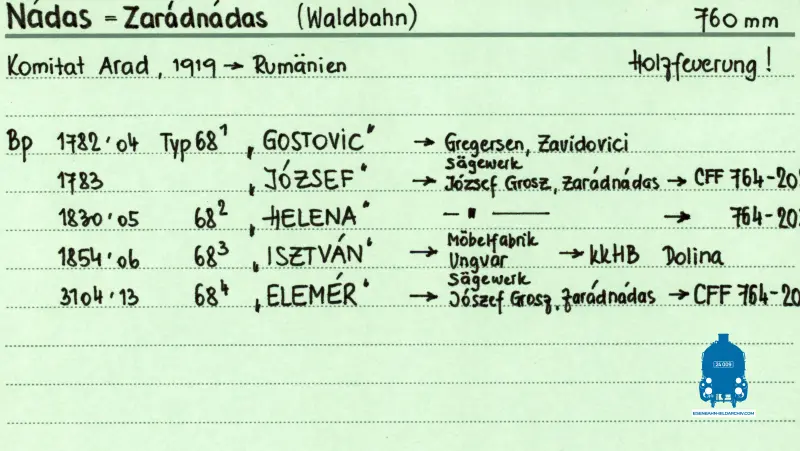 Nádas = Zarádnádas (Waldbahn) 760 mm
Komitat Arad, 1919 → Rumänien Holzfeuerung!
Bp 1782'04 Typ 68¹ „GOSTOVIC" → Gregersen, Zavidovici
Sägewerk
1783 „JÓZSEF" → József Grosz, Zarádnádas → CFF 764-20
1830'05 68² „HELENA" — " — → 764-20
Möbelfabrik
1854'06 68³ „ISZTVÁN" → Ungvár → kkHB Dolina
Sägewerk
3104'13 68⁴ „ELEMÉR" → Jószef Grosz, Zarádnádas → CFF 764-20
24 009
EISENBAHN-BILDARCHIV.COM